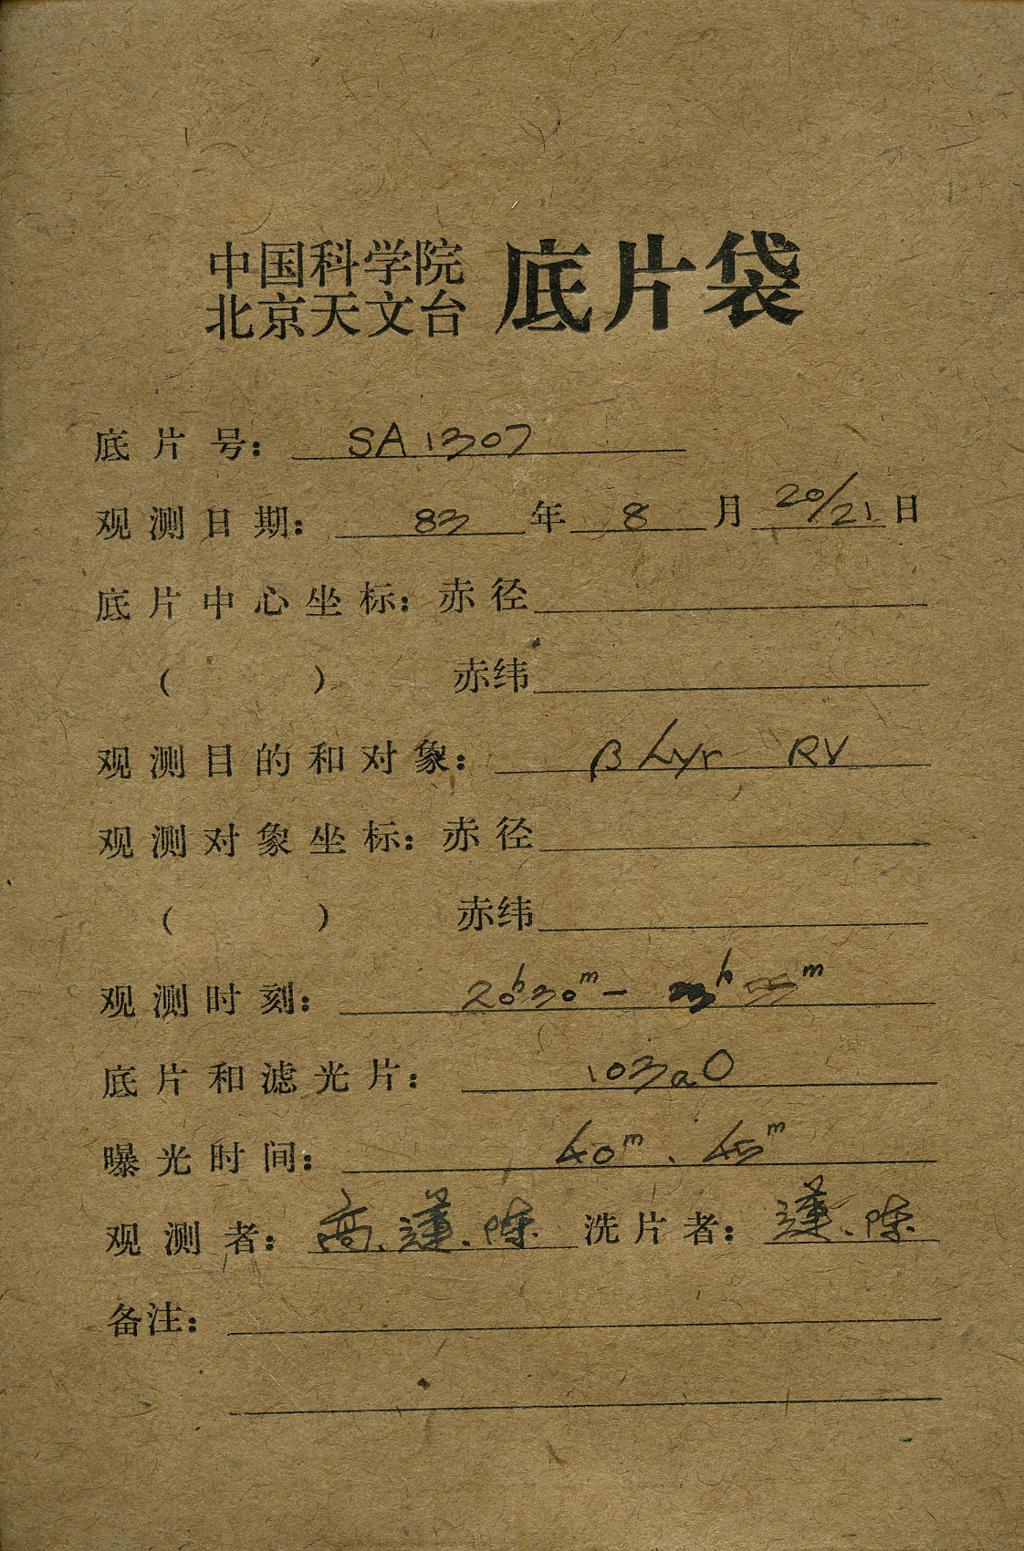 中国科学院
北京天文台
底片袋
底片号: SA1307
观测日期: 83年 8月 20/21日
底片中心坐标: 赤径
( ) 赤纬
观测目的和对象: β Lyr RV
观测对象坐标: 赤径
( ) 赤纬
观测时刻: 20h30m-
底片和滤光片: 103aO
曝光时间: 40m、45m
观测者: 高、谨、陈 洗片者: 谨、陈
备注: